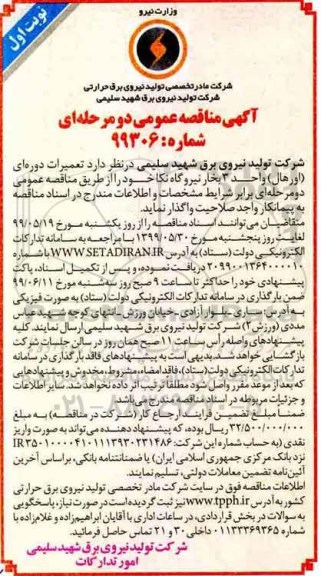 وزارت نیرو
نوبت اول
شرکت مادر تخصصی تولید نیروی برق حرارتی
شرکت تولید نیروی برق شهید سلیمی
آگهی مناقصه عمومی دو مرحله‌ای
شماره: ۹۹۳۰۶
شرکت تولید نیروی برق شهید سلیمی درنظر دارد تعمیرات دوره‌ای
(اورهال) واحد ۳ بخار نیروگاه نکا خود را از طریق مناقصه عمومی
دو مرحله‌ای برابر شرایط مشخصات و اطلاعات مندرج در اسناد مناقصه
به پیمانکار واجد صلاحیت واگذار نماید.
متقاضیان می‌توانند اسناد مناقصه را از روز یکشنبه مورخ ۹۹/۰۵/۱۹
لغایت روز پنجشنبه مورخ ۱۳۹۹/۰۵/۳۰ با مراجعه به سامانه تدارکات
الکترونیکی دولت (ستاد) به آدرس WWW.SETADIRAN.IR با شماره
۲۰۹۹۰۰۱۳۶۴۰۰۰۰۱ دریافت نموده، و پس از تکمیل اسناد، پاکت
پیشنهادی خود را حداکثر تا ساعت ۹ صبح روز سه‌شنبه مورخ ۹۹/۰۶/۱۱
ضمن بارگذاری در سامانه تدارکات الکترونیکی دولت (ستاد) به صورت فیزیکی
به آدرس ساری - بلوار آزادی - خیابان ورزش - انتهای کوچه سید عباس
مددی (ورزش ۲) شرکت تولید نیروی برق شهید سلیمی ارسال نمایند. کلیه
پیشنهادهای واصله رأس ساعت ۱۱ صبح همان روز در سالن جلسات شرکت
بازگشایی خواهد شد. بدیهی است به پیشنهادهای فاقد بارگذاری در سامانه
تدارکات الکترونیکی دولت (ستاد)، فاقد امضاء، مشروط، مخدوش و پیشنهادهایی
که بعد از موعد مقرر واصل شود مطلقا ترتیب اثر داده نخواهد شد. سایر اطلاعات
و جزئیات مربوطه در اسناد مناقصه مندرج می‌باشد.
ضمنا مبلغ تضمین فرآیند ارجاع کار (شرکت در مناقصه) به مبلغ
۳۲/۵۰۰/۰۰۰/۰۰۰ ریال بوده، که پیشنهاد دهنده می‌تواند به صورت واریز
نقدی (به حساب شماره این شرکت: IR ۳۵۰۱۰۰۰۰۴۱۰۱۱۱۳۹۳۰۲۲۱۴۸۶
نزد بانک مرکزی جمهوری اسلامی ایران) یا ضمانتنامه بانکی، براساس آخرین
آئین‌نامه تضمین معاملات دولتی، تسلیم نمایند.
اطلاعات مناقصه فوق در سایت شرکت مادر تخصصی تولید نیروی برق حرارتی
کشور به آدرس www.tpph.ir نیز ثبت گردیده است در صورت نیاز، پاسخگویی
به سوالات در بخش قراردادی، در ساعات اداری با آقایان ابراهیم‌زاده و غلام‌زاده با
شماره ۰۱۱۳۳۳۶۹۳۶۵ داخلی ۳۰ و ۲۱ تماس حاصل فرمائید.
شرکت تولید نیروی برق شهید سلیمی
امور تدارکات